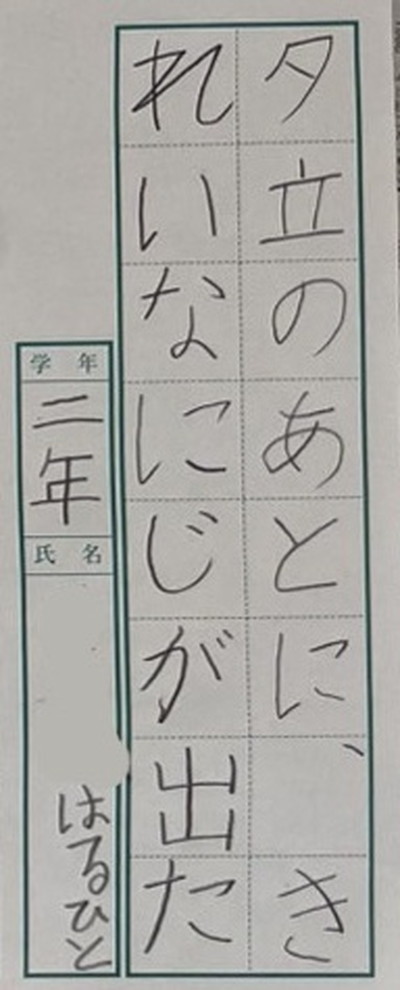 夕立のあとに、き
れいなにじが出た
学年
二年
氏名
はるひと